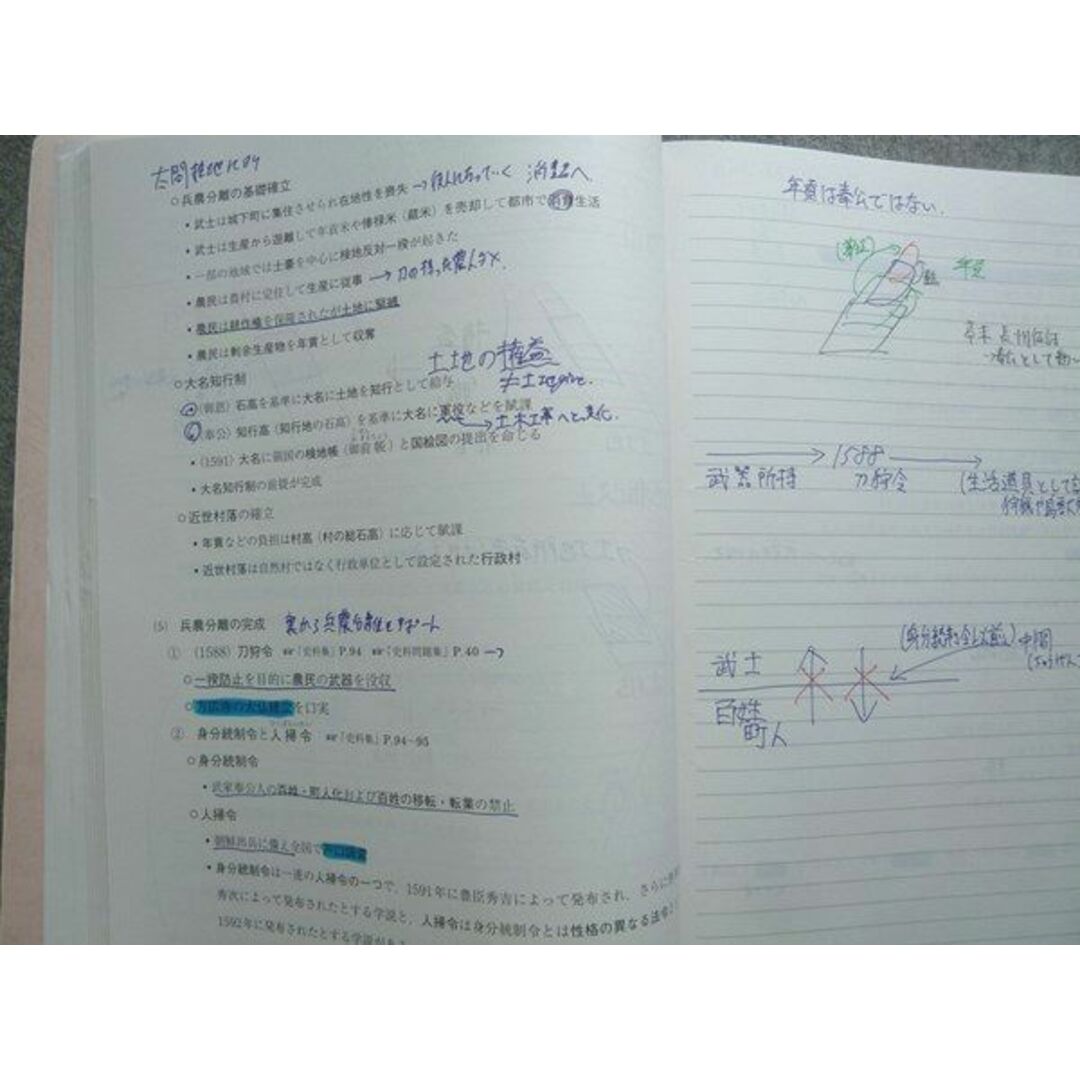 太閤検地により
○兵農分離の基礎確立
・武士は城下町に集住させられ在地性を喪失→ 消費者へ
・武士は生産から遊離して年貢米や俸禄米（蔵米）を売却して都市で消費生活
・一部の地域では土豪を中心に検地反対一揆が起きた
・農民は農村に定住して生産に従事→刀の持つ兵農人ダメ.
・農民は耕作権を保障されたが土地に緊縛
・農民は剰余生産物を年貢として収奪
土地の権益
○大名知行制
・（御恩）石高を基準に大名に土地を知行として給与
・（奉公）知行高（知行地の石高）を基準に大名に軍役などを賦課
→土木工事へと変化.
・（1591）大名に領国の検地帳（御前帳）と国絵図の提出を命じる
・大名知行制の前提が完成
○近世村落の確立
・年貢などの負担は村高（村の総石高）に応じて賦課
・近世村落は自然村ではなく行政単位として設定された行政村
(5) 兵農分離の完成 裏から兵農分離をサポート
① （1588）刀狩令 ☞『史料集』P.94 ☞『史料問題集』P.40
○一揆防止を目的に農民の武器を没収
○方広寺の大仏建立を口実
② 身分統制令と人掃令 ☞『史料集』P.94~95
○身分統制令
・武家奉公人の百姓・町人化および百姓の移転・転業の禁止
○人掃令
・朝鮮出兵に備え全国で戸口調査
・身分統制令は一連の人掃令の一つで，1591年に豊臣秀吉によって発布され，さらに
秀次によって発布されたとする学説と，人掃令は身分統制令とは性格の異なる法令
1592年に発布されたとする学説が
年貢は奉公ではない.
(奉公)
年貢
幕末 長州征討
→奉公として
→ 1588 →
武器所持 刀狩令 (生活道具として
狩猟や鳥獣
(身分統制令以前) 中間
(ちゅうげん
武士
百姓
町人